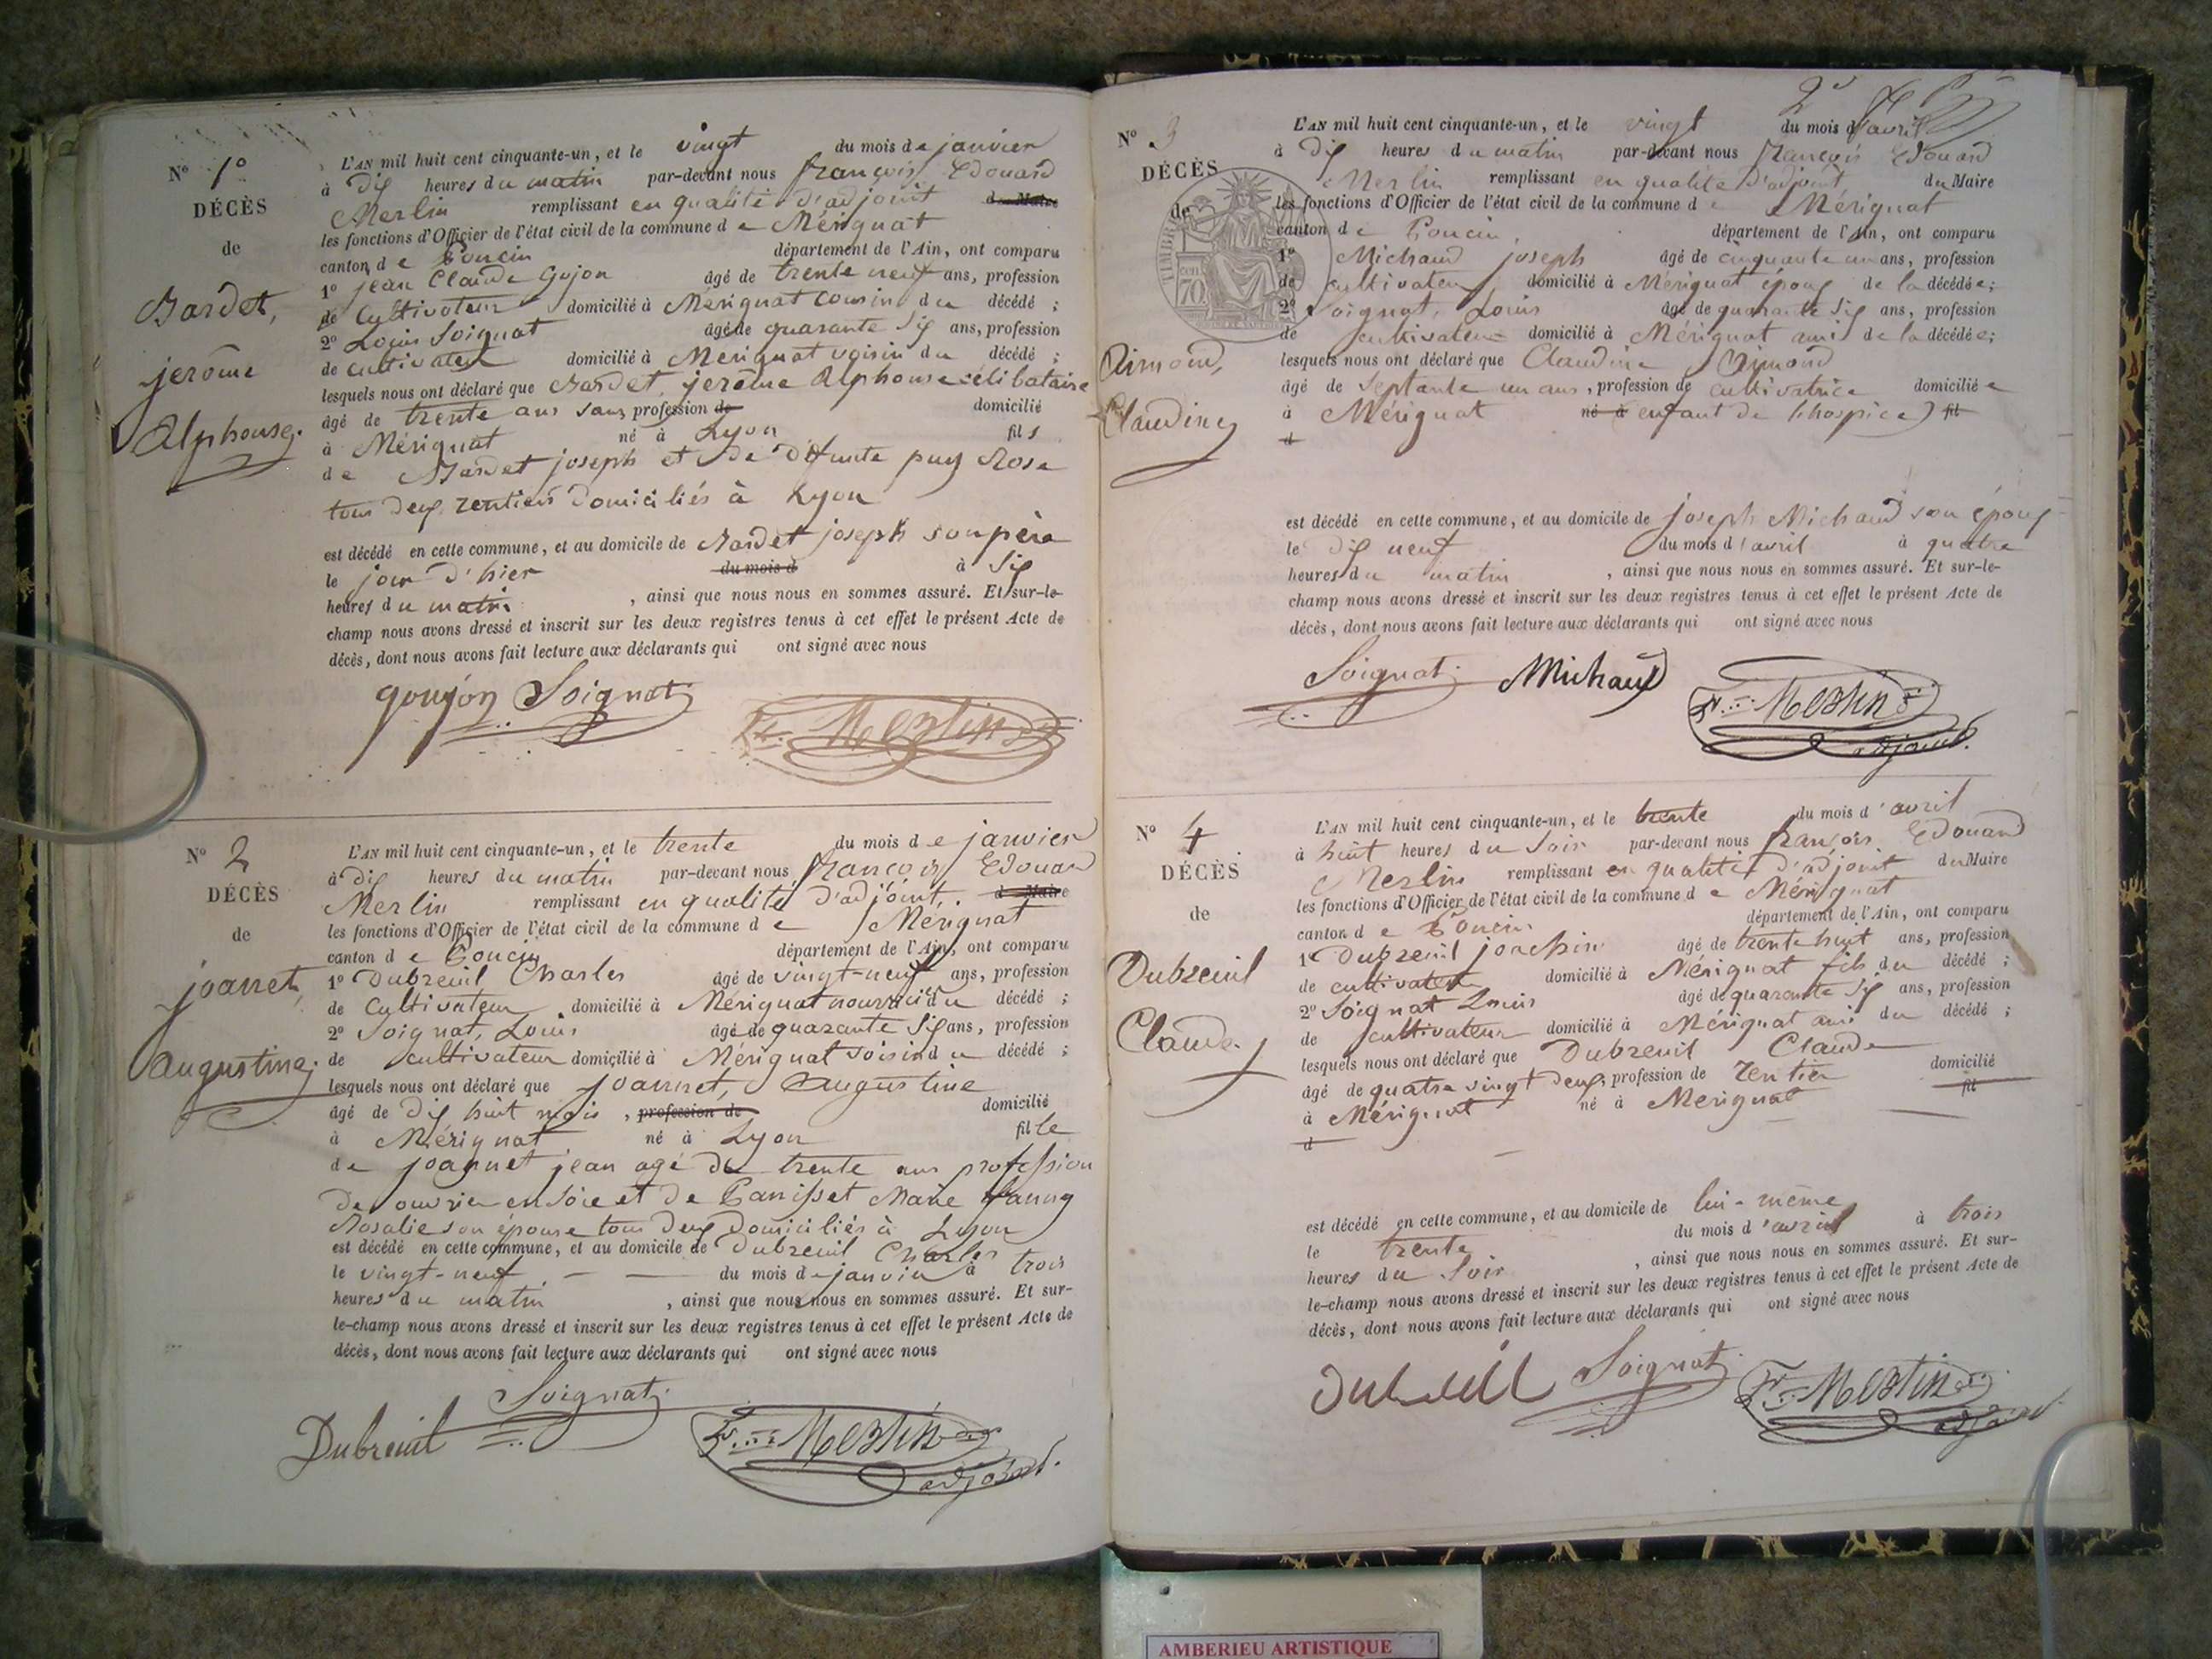 N° 1°
DÉCÈS
de
Bardet,
jerôme
Alphonse.
L'AN mil huit cent cinquante-un, et le vingt du mois de janvier
à dix heures du matin par-devant nous françois Edouard
Merlin remplissant en qualité d'adjoint du Maire
les fonctions d'Officier de l'état civil de la commune de Mérignat
canton de Poncin département de l'Ain, ont comparu
1° jean Claude Gojon âgé de trente neuf ans, profession
de Cultivateur domicilié à Mérignat cousin du décédé ;
2° Louis Soignat âgé de quarante six ans, profession
de cultivateur domicilié à Mérignat voisin du décédé ;
lesquels nous ont déclaré que Bardet, jerôme Alphonse célibataire
âgé de trente ans sans profession de domicilié
à Mérignat né à Lyon fils
de Bardet joseph et de défunte puy Rose
tous deux rentiers domiciliés à Lyon
est décédé en cette commune, et au domicile de Bardet joseph son père
le jour d'hier du mois d à six
heures du matin , ainsi que nous nous en sommes assuré. Et sur-le-
champ nous avons dressé et inscrit sur les deux registres tenus à cet effet le présent Acte de
décès, dont nous avons fait lecture aux déclarants qui ont signé avec nous
goujon Soignat
Merlin
N° 2
DÉCÈS
de
joannet,
augustine.
L'AN mil huit cent cinquante-un, et le trente du mois de janvier
à dix heures du matin par-devant nous françois Edouard
Merlin remplissant en qualité d'adjoint, du Maire
les fonctions d'Officier de l'état civil de la commune de Mérignat
canton de Poncin département de l'Ain, ont comparu
1° Dubreuil Charles âgé de vingt-neuf ans, profession
de Cultivateur domicilié à Mérignat nourricié du décédé ;
2° Soignat, Louis âgé de quarante six ans, profession
de cultivateur domicilié à Mérignat voisin du décédé ;
lesquels nous ont déclaré que joannet, augustine
âgé de dix huit mois , profession de domicilié
à Mérignat né à Lyon fille
de joannet jean agé de trente ans profession
de ouvrier en soie et de Panisset Marie fanny
Rosalie son épouse tous deux domiciliés à Lyon
est décédé en cette commune, et au domicile de Dubreuil Charles
le vingt-neuf du mois de janvier à trois
heures du matin , ainsi que nous nous en sommes assuré. Et sur-
le-champ nous avons dressé et inscrit sur les deux registres tenus à cet effet le présent Acte de
décès, dont nous avons fait lecture aux déclarants qui ont signé avec nous
Soignat
Dubreuil Merlin
adjoint.
2e
N° 3
DÉCÈS
de
Aimond,
Claudine
TIMBRE
70
L'AN mil huit cent cinquante-un, et le vingt du mois d'avril
à dix heures du matin par-devant nous françois Edouard
Merlin remplissant en qualité d'adjoint du Maire
les fonctions d'Officier de l'état civil de la commune de Mérignat
canton de Poncin, département de l'Ain, ont comparu
1° Michaud joseph âgé de cinquante un ans, profession
de cultivateur domicilié à Mérignat époux de la décédée;
2° Soignat, Louis âgé de quarante six ans, profession
de cultivateur domicilié à Mérignat ami de la décédée;
lesquels nous ont déclaré que Claudine Aimond
âgé de septante un ans, profession de cultivatrice domiciliée
à Mérignat né à enfant de l'hospice) fil
d
est décédé en cette commune, et au domicile de joseph Michaud son époux
le dix neuf du mois d'avril à quatre
heures du matin , ainsi que nous nous en sommes assuré. Et sur-le-
champ nous avons dressé et inscrit sur les deux registres tenus à cet effet le présent Acte de
décès, dont nous avons fait lecture aux déclarants qui ont signé avec nous
Soignat Michaud Merlin
adjoint.
N° 4
DÉCÈS
de
Dubreuil
Claude
L'AN mil huit cent cinquante-un, et le trente du mois d'avril
à huit heures du soir par-devant nous françois Edouard
Merlin remplissant en qualité d'adjoint du Maire
les fonctions d'Officier de l'état civil de la commune de Mérignat
canton de Poncin département de l'Ain, ont comparu
1° Dubreuil joachin âgé de trente huit ans, profession
de cultivateur domicilié à Mérignat fils du décédé ;
2° Soignat Louis âgé de quarante six ans, profession
de cultivateur domicilié à Mérignat ami du décédé ;
lesquels nous ont déclaré que Dubreuil Claude
âgé de quatre vingt deux, profession de rentier domicilié
à Mérignat né à Merignat fil
d
est décédé en cette commune, et au domicile de lui-même
le trente du mois d'avril à trois
heures du soir , ainsi que nous nous en sommes assuré. Et sur-
le-champ nous avons dressé et inscrit sur les deux registres tenus à cet effet le présent Acte de
décès, dont nous avons fait lecture aux déclarants qui ont signé avec nous
Dubreuil Soignat Merlin
adjoint
AMBERIEU ARTISTIQUE